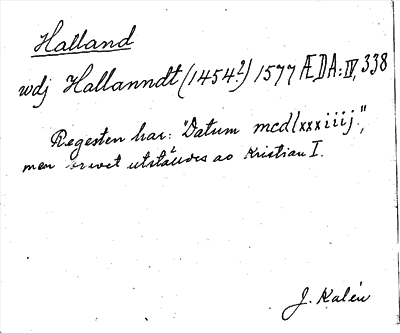 Halland
wdj Hallanndt (1454?) 1577 ÆDA: IV, 338
Regesten har: "Datum mcdlxxxiiij",
men utställdes av Kristian I.
J. Kalén